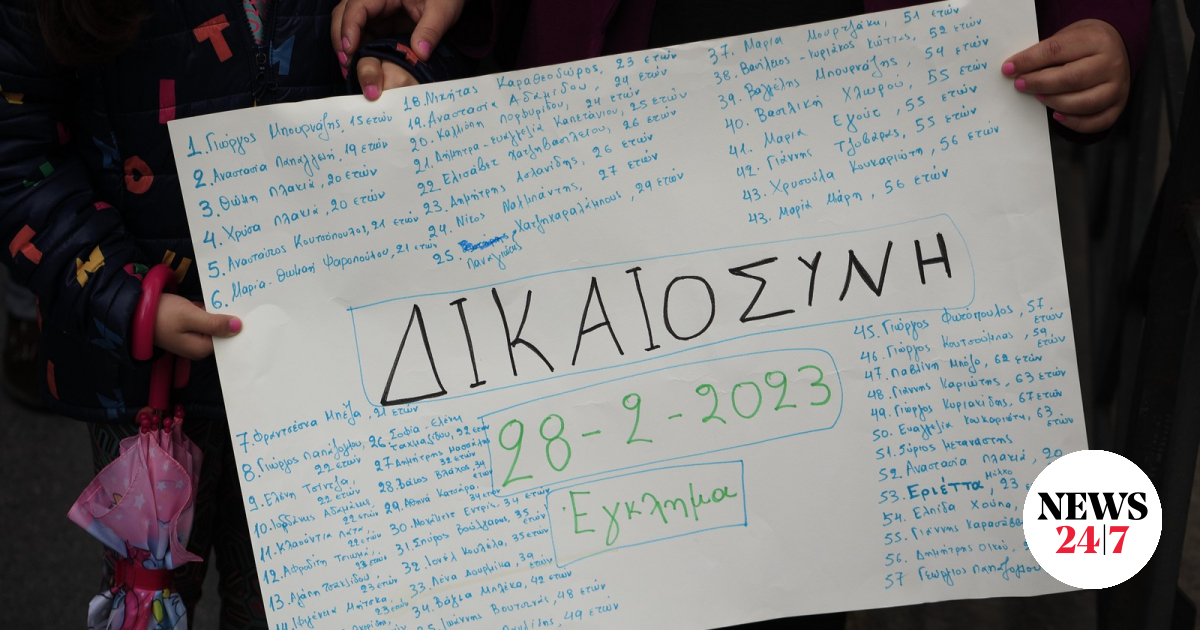 1. Γιώργος Μπουρνάζης, 15 ετών
2. Αναστασία Παπαγγελή, 19 ετών
3. Θώμη Πλακιά, 20 ετών
4. Χρύσα Πλακιά, 20 ετών
5. Αναστάσιος Κουτσόπουλος, 21 ετών
6. Μαρία-Θωμαή Ψαροπούλου, 21 ετών
18. Νικήτας Καραθεόδωρος, 23 ετών
19. Αναστασία Αδαμίδου, 24 ετών
20. Καλλιόπη Πορφυρίδου, 24 ετών
21. Δήμητρα-Ευαγγελία Καπετάνιου, 25 ετών
22. Ελισάβετ Χατζηβασιλείου, 26 ετών
23. Δημήτρης Ασλανίδης, 26 ετών
24. Νίκος Ναλμπάντης, 27 ετών
25. Χατζηχαραλάμπους, 29 ετών
Παναγιώτης
37. Μαρία Μουρτζάκη, 51 ετών
38. Βασίλειος-Κυριάκος Κώττας, 52 ετών
39. Βαγγέλης Μπουρνάζης, 54 ετών
40. Βασιλική Χλωρού, 55 ετών
41. Μαρία Εγούτ, 55 ετών
42. Γιάννης Τζοβάρας, 55 ετών
43. Χρυσούλα Κουκαριώτη, 56 ετών
43. Μαρία Μάρη, 56 ετών
ΔΙΚΑΙΟΣΥΝΗ
28-2-2023
Έγκλημα
7. Φραντσέσκα Μπέζα, 21 ετών
8. Γιώργος Παπάζογλου,
22 ετών
9. Ελένη Τσίντζα,
22 ετών
10. Ιορδάνης Αδαμάκης,
22 ετών
11. Κλαούντια Λάτα,
22 ετών
12. Αφροδίτη Τσιωμά,
23 ετών
13. Αγάπη Τσακλίδου,
23 ετών
14. Ιφιγένεια Μήτσκα,
23 ετών
26. Σοφία-Ελένη
Ταχμαζίδου, 32 ετών
27. Δημήτρης Μασσάλης
32 ετών
28. Βάιος Βλάχος, 34
ετών
29. Αθηνά Κατσάρα,
34 ετών
30. Μοχάμεντ Εντρίς, 34 ετών
31. Σπύρος Βούλγαρης, 35
ετών
32. Ιανέλ Κουλέλα, 35 ετών
33. Λένα Δουρμίκα, 39
ετών
34. Βάγια Μπλέκα, 42 ετών
35. Ιωάννης Βουτσινάς, 48 ετών
49 ετών
45. Γιώργος Φωτόπουλος, 57
ετών
46. Γιώργος Κουτσούμπας, 59
ετών
47. Παβλίνη Μπόζο, 62 ετών
48. Γιάννης Καριώτης, 63 ετών
49. Γιώργος Κυριακίδης, 67 ετών
50. Ευαγγελία Κουκαριώτη, 63
ετών
51. Σύριος μετανάστης
52. Αναστασία Πλακιά, 20
53. Εριέττα Μόλχο, 23
54. Ελπίδα Χούπα,
55. Γιάννης
56. Δημήτρης Οικο
57 Γεώργιος Παπάζογλου
NEWS
24|7